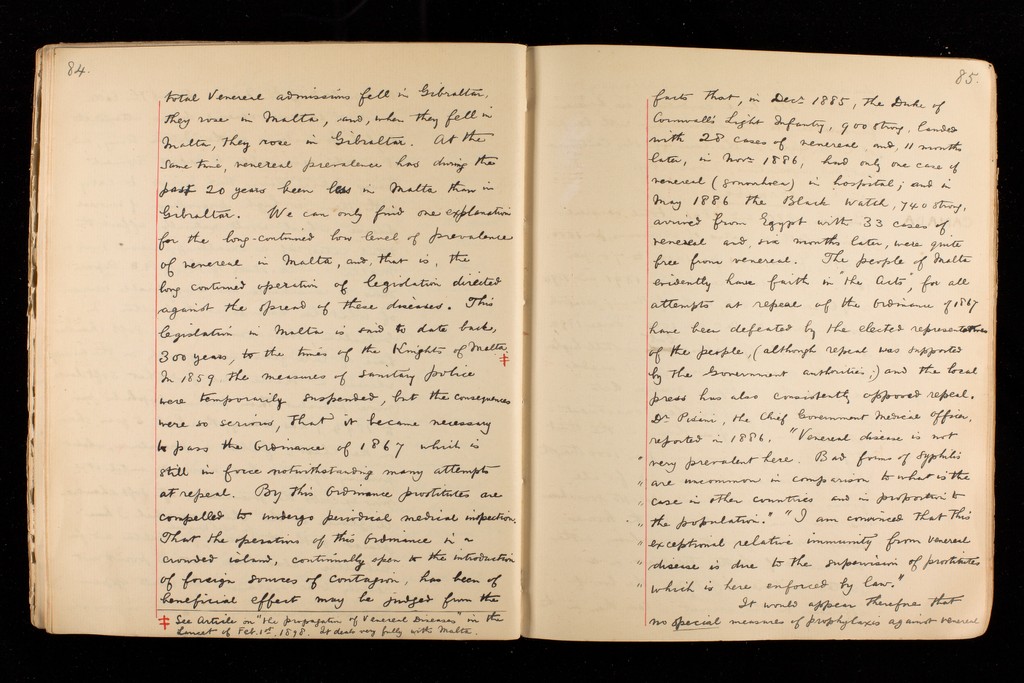 84.
total Venereal admissions fell in Gibraltar,
they rose in Malta, and, when they fell in
Malta, they rose in Gibraltar. At the
same time, venereal prevalence has during the
past 20 years been less in Malta than in
Gibraltar. We can only find one explanation
for the long-continued low level of prevalence
of venereal in Malta, and, that is, the
long continued operation of legislation directed
against the spread of these diseases. This
legislation in Malta is said to date back,
300 years, to the times of the Knights of Malta. ‡
In 1859 the measures of sanitary police
were temporarily suspended, but the consequences
were so serious, that it became necessary
to pass the Ordinance of 1867 which is
still in force notwithstanding many attempts
at repeal. By this Ordinance prostitutes are
compelled to undergo periodical medical inspection.
That the operations of this Ordinance in a
crowded island, continually open to the introduction
of foreign sources of contagion, has been of
beneficial effect may be judged from the
‡ See Article on "the propagation of Venereal Diseases" in the
Lancet of Feb. 1st 1898. It deals very fully with Malta.
85.
facts that, in Decr 1885, the Duke of
Cornwall's Light Infantry, 900 strong, landed
with 28 cases of venereal and, 11 months
later, in Novr 1886, had only one case of
venereal (gonorrhoea) in hospital; and in
May 1886 the Black Watch, 740 strong,
arrived from Egypt with 33 cases of
venereal and, six months later, were quite
free from venereal. The people of Malta
evidently have faith in "the Acts", for all
attempts at repeal of the Ordinance of 1867
have been defeated by the elected representatives
of the people, (although repeal was supported
by the Government authorities;) and the local
press has also consistently opposed repeal.
Dr Pisani, the Chief Government Medical Officer,
reported in 1886. "Venereal disease is not
" very prevalent here. Bad forms of Syphilis
" are uncommon in comparison to what is the
" case in other countries and in proportion to
" the population." "I am convinced that this
" exceptional relative immunity from venereal
" disease is due to the supervision of prostitutes
" which is here enforced by law."
It would appear therefore that
no special measures of prophylaxis against venereal